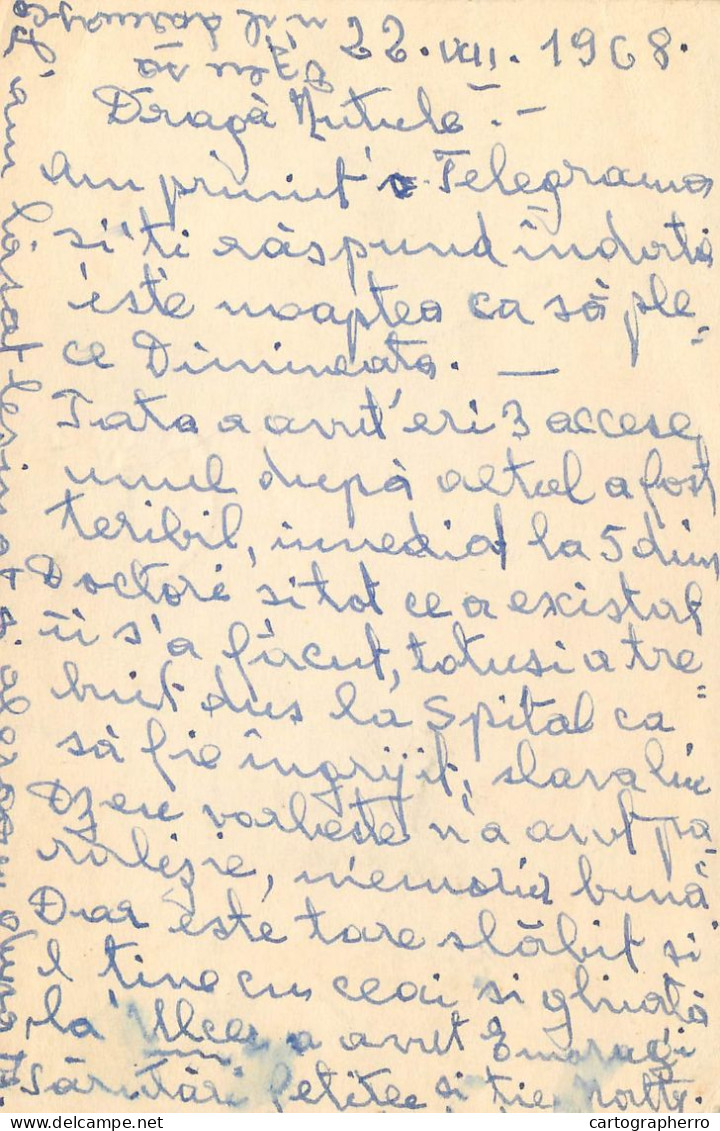 22. VIII. 1968.
Dragă Nutule. -
Am primit Telegrama
si'ti răspund îndată
este noaptea ca să ple=
ce Dimineata. —
Tata a avut eri 3 accese
unul după altul a fost
teribil, imediat la 5 dim
Doctori si tot ce a existat
ii s'a făcut, totusi a tre=
buit dus la Spital ca
să fie îngrijit, slava lui
Dzeu vorbeste n'a avut pa=
ralizie, memoria bună
Dar este tare slăbit si
l tine cu ceai si ghiată
la Ulcer a avut Emoragi
Sărutări fetitei si tie
L'am lăsat
Dzeu să
cartographerro